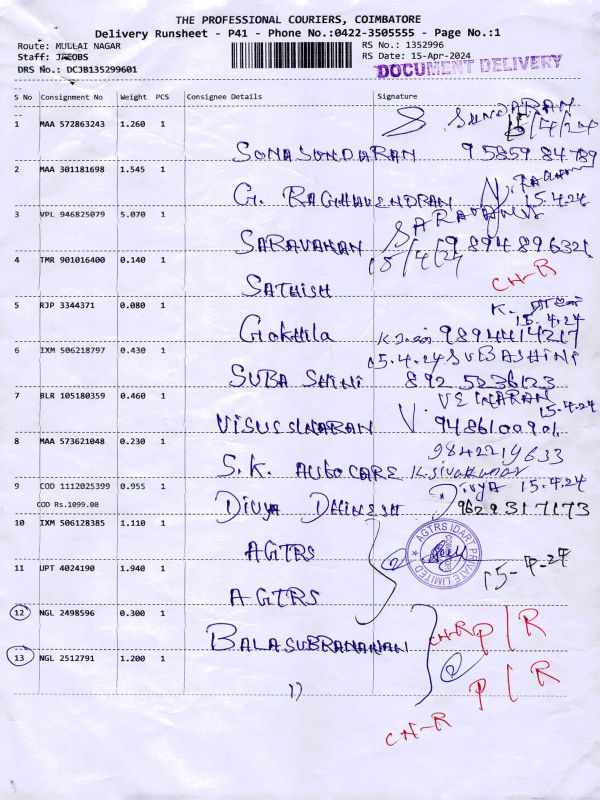 THE PROFESSIONAL COURIERS, COIMBATORE
Delivery Runsheet - P41 - Phone No.:0422-3505555 - Page No.:1
Route: MULLAI NAGAR RS No.: 1352996
Staff: JACOBS RS Date: 15-Apr-2024
DRS No.: DCJB135299601 DOCUMENT DELIVERY
S No Consignment No Weight PCS Consignee Details Signature
SUNDARAN
1 MAA 572863243 1.260 1 15/4/24
SONASUNDARAN 95859 84789
2 MAA 301181698 1.545 1
G. RAGHAVENDRAN 15.4.24
3 VPL 946825079 5.070 1 SARAVANAN
SARAVANAN 9894896321
15/4/24
4 TMR 901016400 0.140 1 CH-R
SATHISH
5 RJP 3344371 0.080 1 K.
15.4.24
Gokhila 9894414217
6 IXM 506218797 0.430 1 15.4.24 SUBASHINI
SUBA SHINI 892 5236123
7 BLR 105180359 0.460 1 15.4.24
VISUSSINARAN V. 9486100901
8 MAA 573621048 0.230 1 9842219633
S.K. AUTOCARE K.sivakumar
9 COD 1112025399 0.955 1 Divya 15.4.24
COD Rs.1099.00
DIVYA DHINESH 9629317173
10 IXM 506128385 1.110 1
AGTRS AGTRS IDART PRIVATE LIMITED
2
11 UPT 4024190 1.940 1 15-4-24
AGTRS
12 NGL 2498596 0.300 1
BALASUBRANANAN CH-R P/R
2
13 NGL 2512791 1.200 1 P/R
CH-R